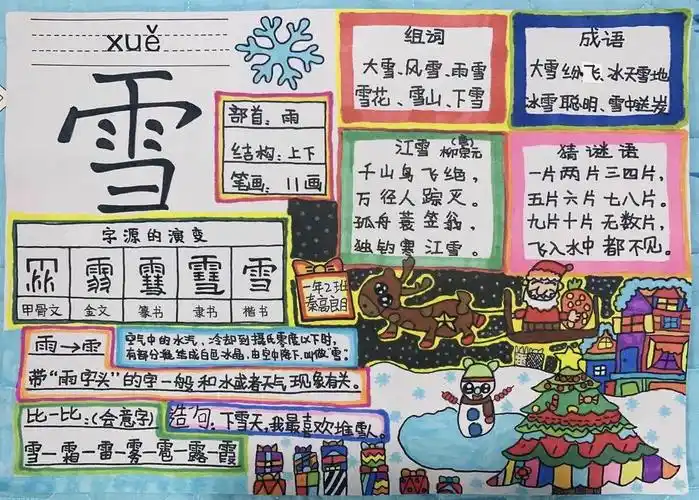 xuě
雪
部首：雨
结构：上下
笔画：11画
组词
大雪、风雪、雨雪
雪花、雪山、下雪
成语
大雪纷飞、冰天雪地
冰雪聪明、雪中送炭
江雪 (唐) 柳宗元
千山鸟飞绝，
万径人踪灭。
孤舟蓑笠翁，
独钓寒江雪。
猜谜语
一片两片三四片，
五片六片七八片。
九片十片无数片，
飞入水中都不见。
字源的演变
甲骨文 金文 篆书 隶书 楷书
雪
一年2班
秦高良日
雨→⻗
空气中的水汽，冷却到摄氏零度以下时，
有部分凝结成白色水晶，由空中降下，叫做“雪”。
带“雨字头”的字一般和水或者天气现象有关。
比一比：(会意字)
雪—霜—雷—雾—雹—露—霞
造句：下雪天，我最喜欢堆雪人。